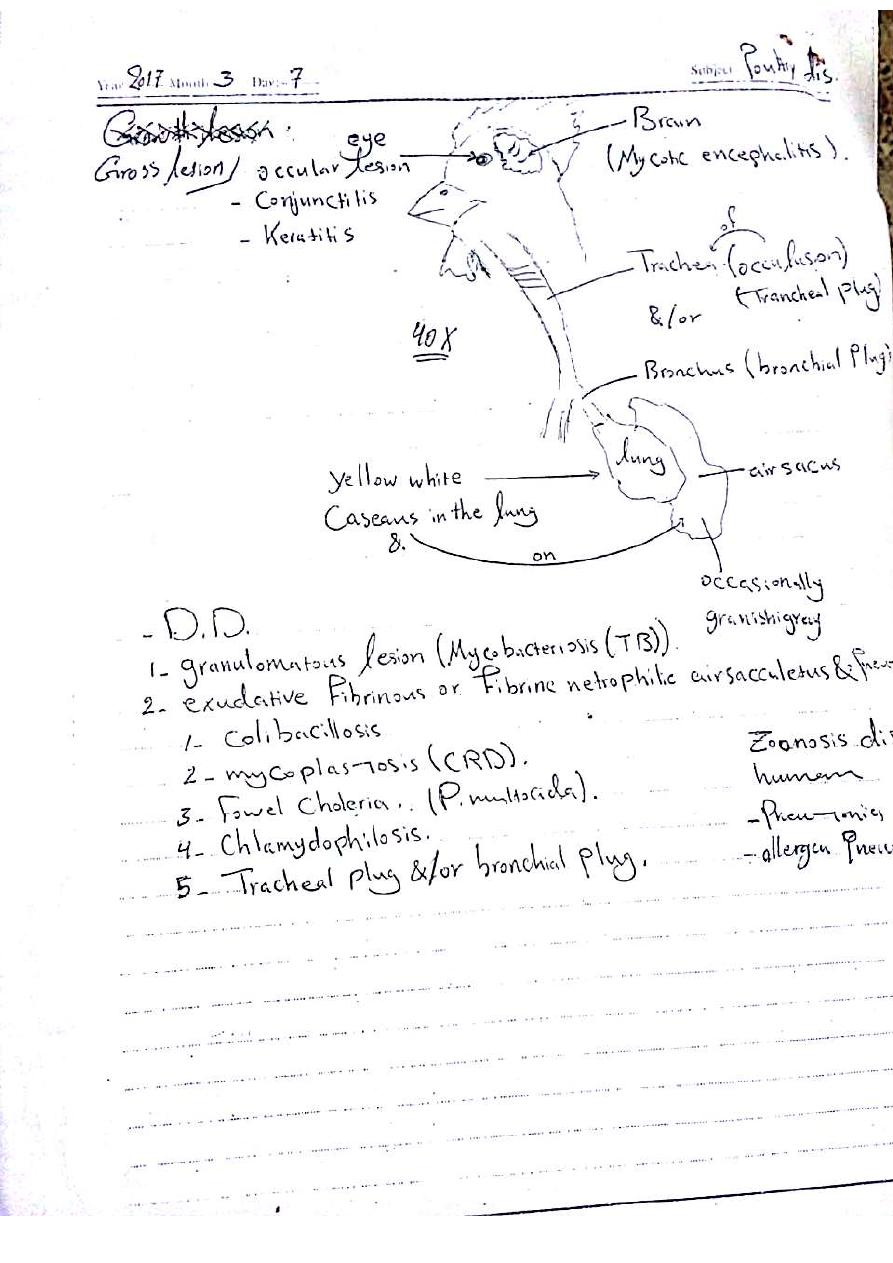 Year 2017 Month 3 Day: 7
Subject Poultry dis.
Gross lesion/ occular eye lesion
- Conjunctilis
- Keratitis
Brain
(Mycotic encephalitis).
Trachea (occulusion) of
(Trancheal plug)
&/or
40X
Bronchus (bronchial Plug)
lung
air sacus
yellow white
Caseaus in the lung
&.
on
occasionally
granishigray
- D.D.
1- granulomatous lesion (Mycobacteriosis (TB)).
2- exudative Fibrinous or Fibrine netrophilic airsacculetus &
1- Colibacillosis
2- mycoplasmosis (CRD).
3- Fowel Choleria.. (P. multocida).
4- Chlamydophilosis.
5- Tracheal plug &/or bronchial plug.
Zoonosis
human
- Pneumonia
- allergen